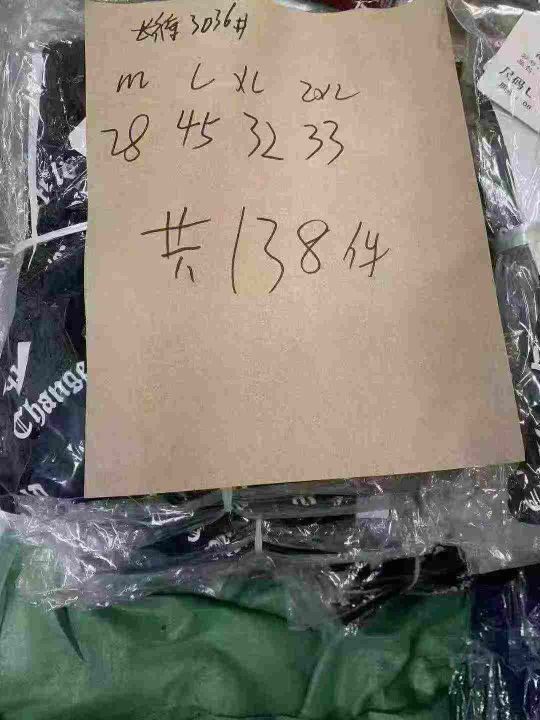 长袖 3036#
M L XL 2XL
28 45 32 33
共138件
尺码 L
Change